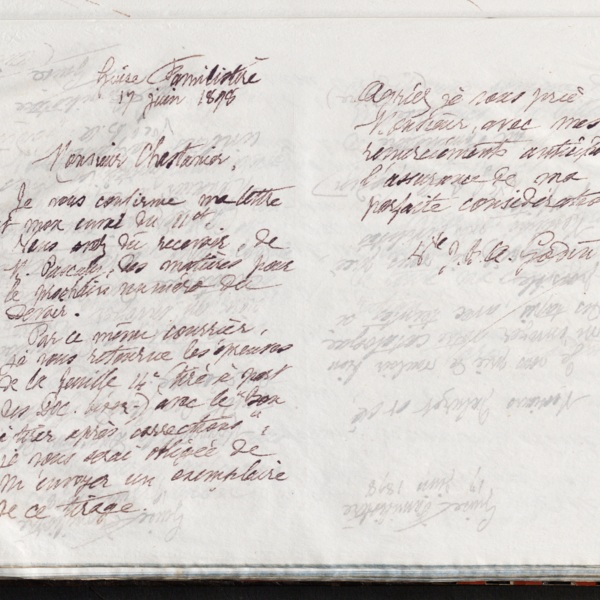 Guise Familistère
17 juin 1898
Monsieur Chastanier,
Je vous confirme ma lettre
et mon envoi du 11 ct.
Vous avez dû recevoir, de
M. Pascaly, des matières pour
le prochain numéro du
Devoir.
Par ce même courrier,
je vous retourne les épreuves
de la feuille 14e (tiré à part
des Doc. biog.) avec le "Bon
à tirer après corrections";
je vous serai obligée de
m'envoyer un exemplaire
de ce tirage.
Agréez je vous prie
Monsieur, avec mes
remerciements anticipés
l'assurance de ma
parfaite considération
Vve J. Bte A. Godin